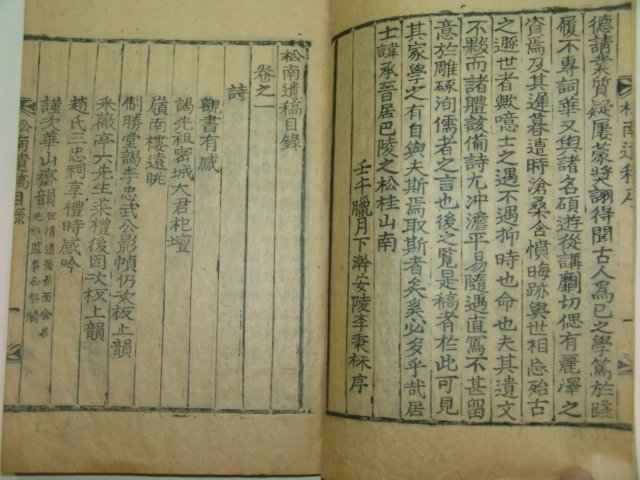 德請業質疑屢蒙奬詡得聞古人爲己之學篤於踐
履不專詞華又與諸名碩遊從講劘切偲有麗澤之
資焉及其遲暮遭時滄桑含憤晦跡與世相忘殆古
之遯世者歟噫士之遇不遇抑時也命也夫其遺文
不夥而諸體該備詩尤沖澹平易隨遇直寫不甚留
意於雕琢洵儒者之言也後之覽是稿者於此可見
其家學之有自與夫斯焉取斯者矣奚必多乎哉居
士諱承晉居巴陵之松桂山南
壬午臘月下澣安陵李秉株序
松南遺稿序
松南遺稿目錄
卷之一
詩
觀書有感
謁先祖密城大君祀壇
嶺南樓遠眺
制勝堂謁李忠武公影幀仍次板上韻
采薇亭六先生菜禮後因次板上韻
趙氏三忠祠享禮時感吟
謹次華山齋韻
松南遺稿目錄
一